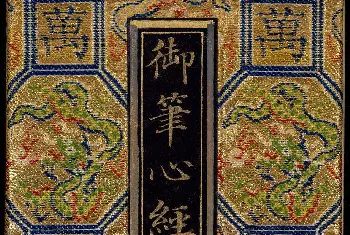 萬
萬
御筆心經